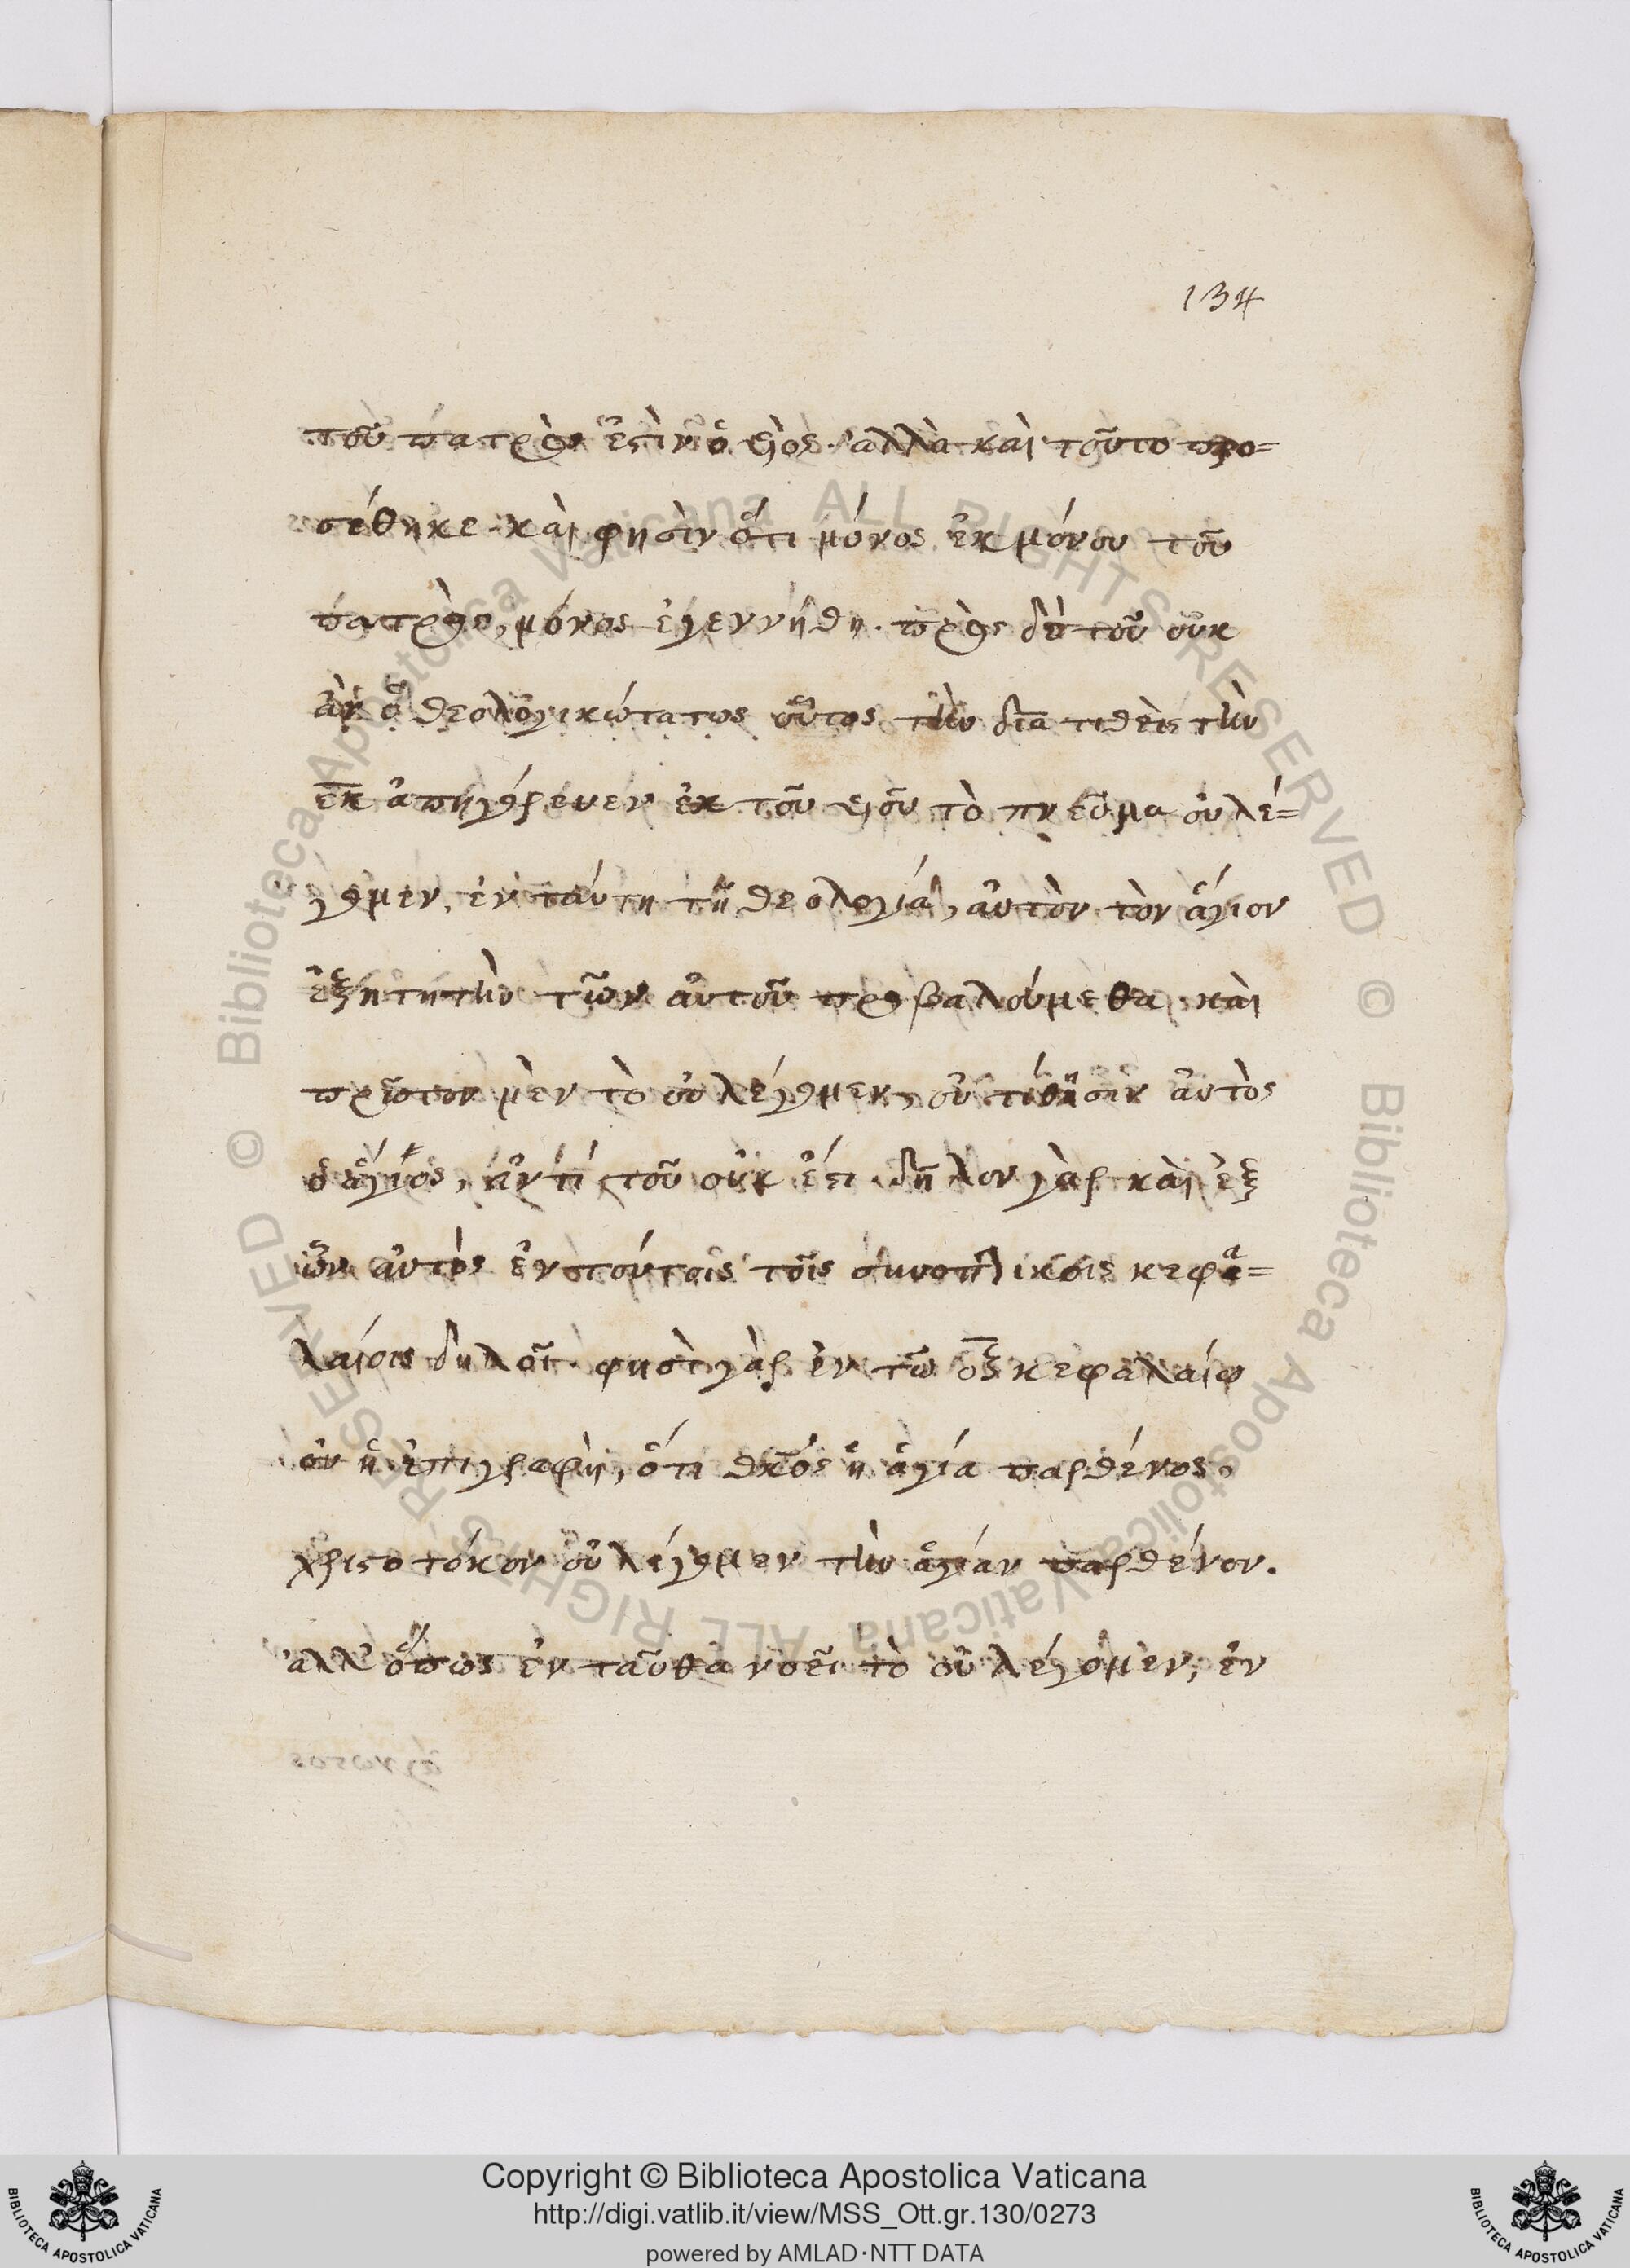 134
τοῦ πατρός ἐστιν ὁ υἱὸς. ἀλλὰ καὶ τοῦτο προ=
σέθηκε καὶ φησὶν ὅτι μόνος ἐκ μόνου τοῦ
πατρὸς, μόνος ἐγεννήθη. πρὸς δὲ τοῦ οὐκ
ἂν ὁ θεολογικώτατος οὗτος τὴν δια τιθεὶς τὴν
ἐκ ἀπηγόρευεν ἐκ τοῦ υἱοῦ τὸ πνεῦμα οὐ λέ=
γομεν, ἐν ταύτη τῆ θεολογία, αὐτὸν τὸν ἅγιον
ἐξηγητὴν τῶν αὐτοῦ προβαλούμεθα. καὶ
πρῶτον μὲν τὸ οὐ λέγομεν, οὐ τίθησιν αὐτὸς
ὁ ἅγιος, ἀντὶ τοῦ οὐκ ἔστι. δῆλον γὰρ καὶ ἐξ
ὧν αὐτὸς ἐν τούτοις τοῖς συνοπτικοῖς κεφα=
λαίοις δηλοῖ. φησὶ γὰρ ἐν τῶ οξ κεφαλαίω
οὗ ἡ ἐπιγραφὴ, ὅτι θκος ἡ ἁγία παρθένος,
χριστοτόκον οὐ λέγομεν τὴν ἁγίαν παρθένον.
ἀλλ' ὅπως ἐνταῦθα νοεῖ τὸ οὐ λέγομεν, ἐν
Copyright © Biblioteca Apostolica Vaticana
http://digi.vatlib.it/view/MSS_Ott.gr.130/0273
powered by AMLAD·NTT DATA
BIBLIOTECA APOSTOLICA VATICANA
BIBLIOTECA APOSTOLICA VATICANA
© Biblioteca Apostolica Vaticana ALL RIGHTS RESERVED © Biblioteca Apostolica Vaticana ALL RIGHTS RESERVED